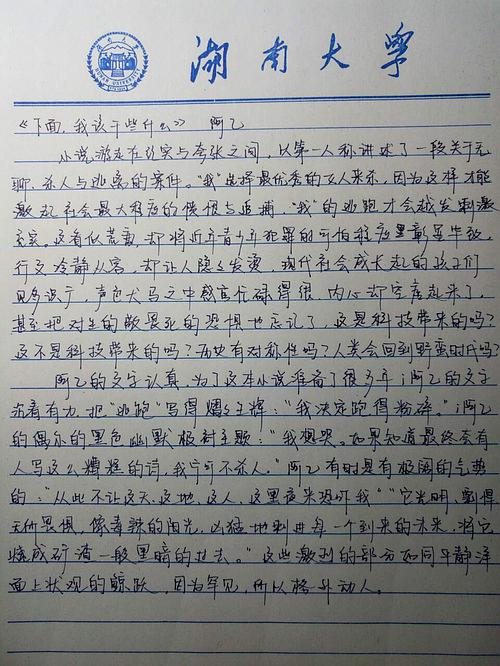 湖南大学
《下面,我该干些什么》 阿乙
小说游走在纪实与夸张之间,以第一人称讲述了一段关于无
聊、杀人与逃离的案件。"我"选择最优秀的女人来杀,因为这样才能
激起社会最大程度的愤恨与追捕,"我"的逃跑才会越发刺激
充实。这看似荒蛮,却将近年青少年犯罪的可怕程度里彰显毕致,
行文冷静从容,却让人隐隐发寒,现代社会成长起的孩子们
见多识广,声色犬马之中感官忙碌得很,内心却空虚起来了,
甚至把对生的敬畏死的恐惧也忘记了,这是科技带来的吗?
这不是科技带来的吗?历史有对称性吗?人类会回到野蛮时代吗?
阿乙的文字认真,为了这本小说准备了很多年;阿乙的文字
沉着有力,把"逃跑"写得熠熠生辉:"我决定跑得粉碎。";阿乙
的偶尔的黑色幽默极衬主题:"我想哭。如果知道最终会有
人写这么糟糕的诗,我宁可不杀人。"阿乙有时是有极阔的气势
的:"从此不让这天、这地、这人、这里夜来恐吓我""它光明、剽悍、
无所畏惧,像毒辣的阳光,凶猛地刺进每一个到来的未来,将它
烧成矿渣一段黑暗的过去。"这些激烈的部分如同平静洋
面上壮观的鲸跃,因为罕见,所以格外动人。